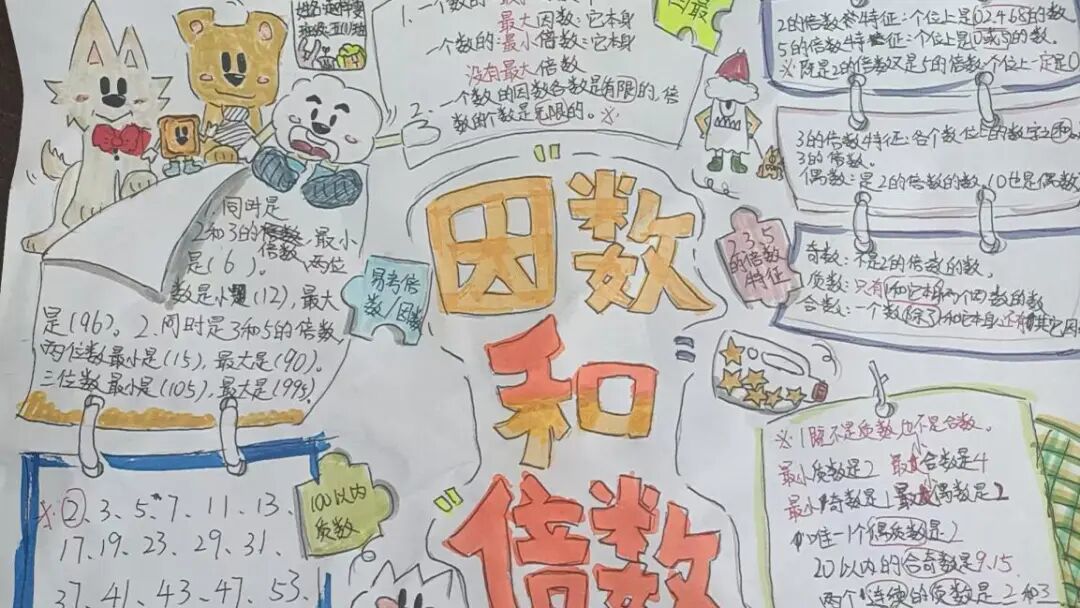 1.一个数的
最大因数:它本身
一个数的:最小倍数:它本身
没有最大倍数
2.一个数的因数合数是有限的,倍
数的个数是无限的。※
2的倍数特征:个位上是02468的数
5的倍数特征:个位上是0或5的数。
※既是2的倍数又是5的倍数个位上一定是0
3的倍数特征:各个数位上的数字之和
3的倍数。
偶数:是2的倍数的数,(0也是偶数
2.3.5
的倍数
特征
奇数:不是2的倍数的数。
质数:只有1和它本身两个因数的数
合数:一个数除了1和它本身还有其它因
同时是
2和3的倍数,最小
是(6)。两位
数是小(12),最大
是(96)。2.同时是3和5的倍数
两位数最小是(15),最大是(90)。
三位数最小是(105),最大是(995)。
易考倍
数/因数
因数
和
倍数
※1既不是质数也不是合数。
最小质数是2 最小合数是4
最小奇数是1最小偶数是2
唯一1个偶质数是2
20以内的合奇数是9.15
两个连续的质数是2和3
100以内
质数
※②、3、5、7、11、13、
17、19、23、29、31、
37、41、43、47、53、